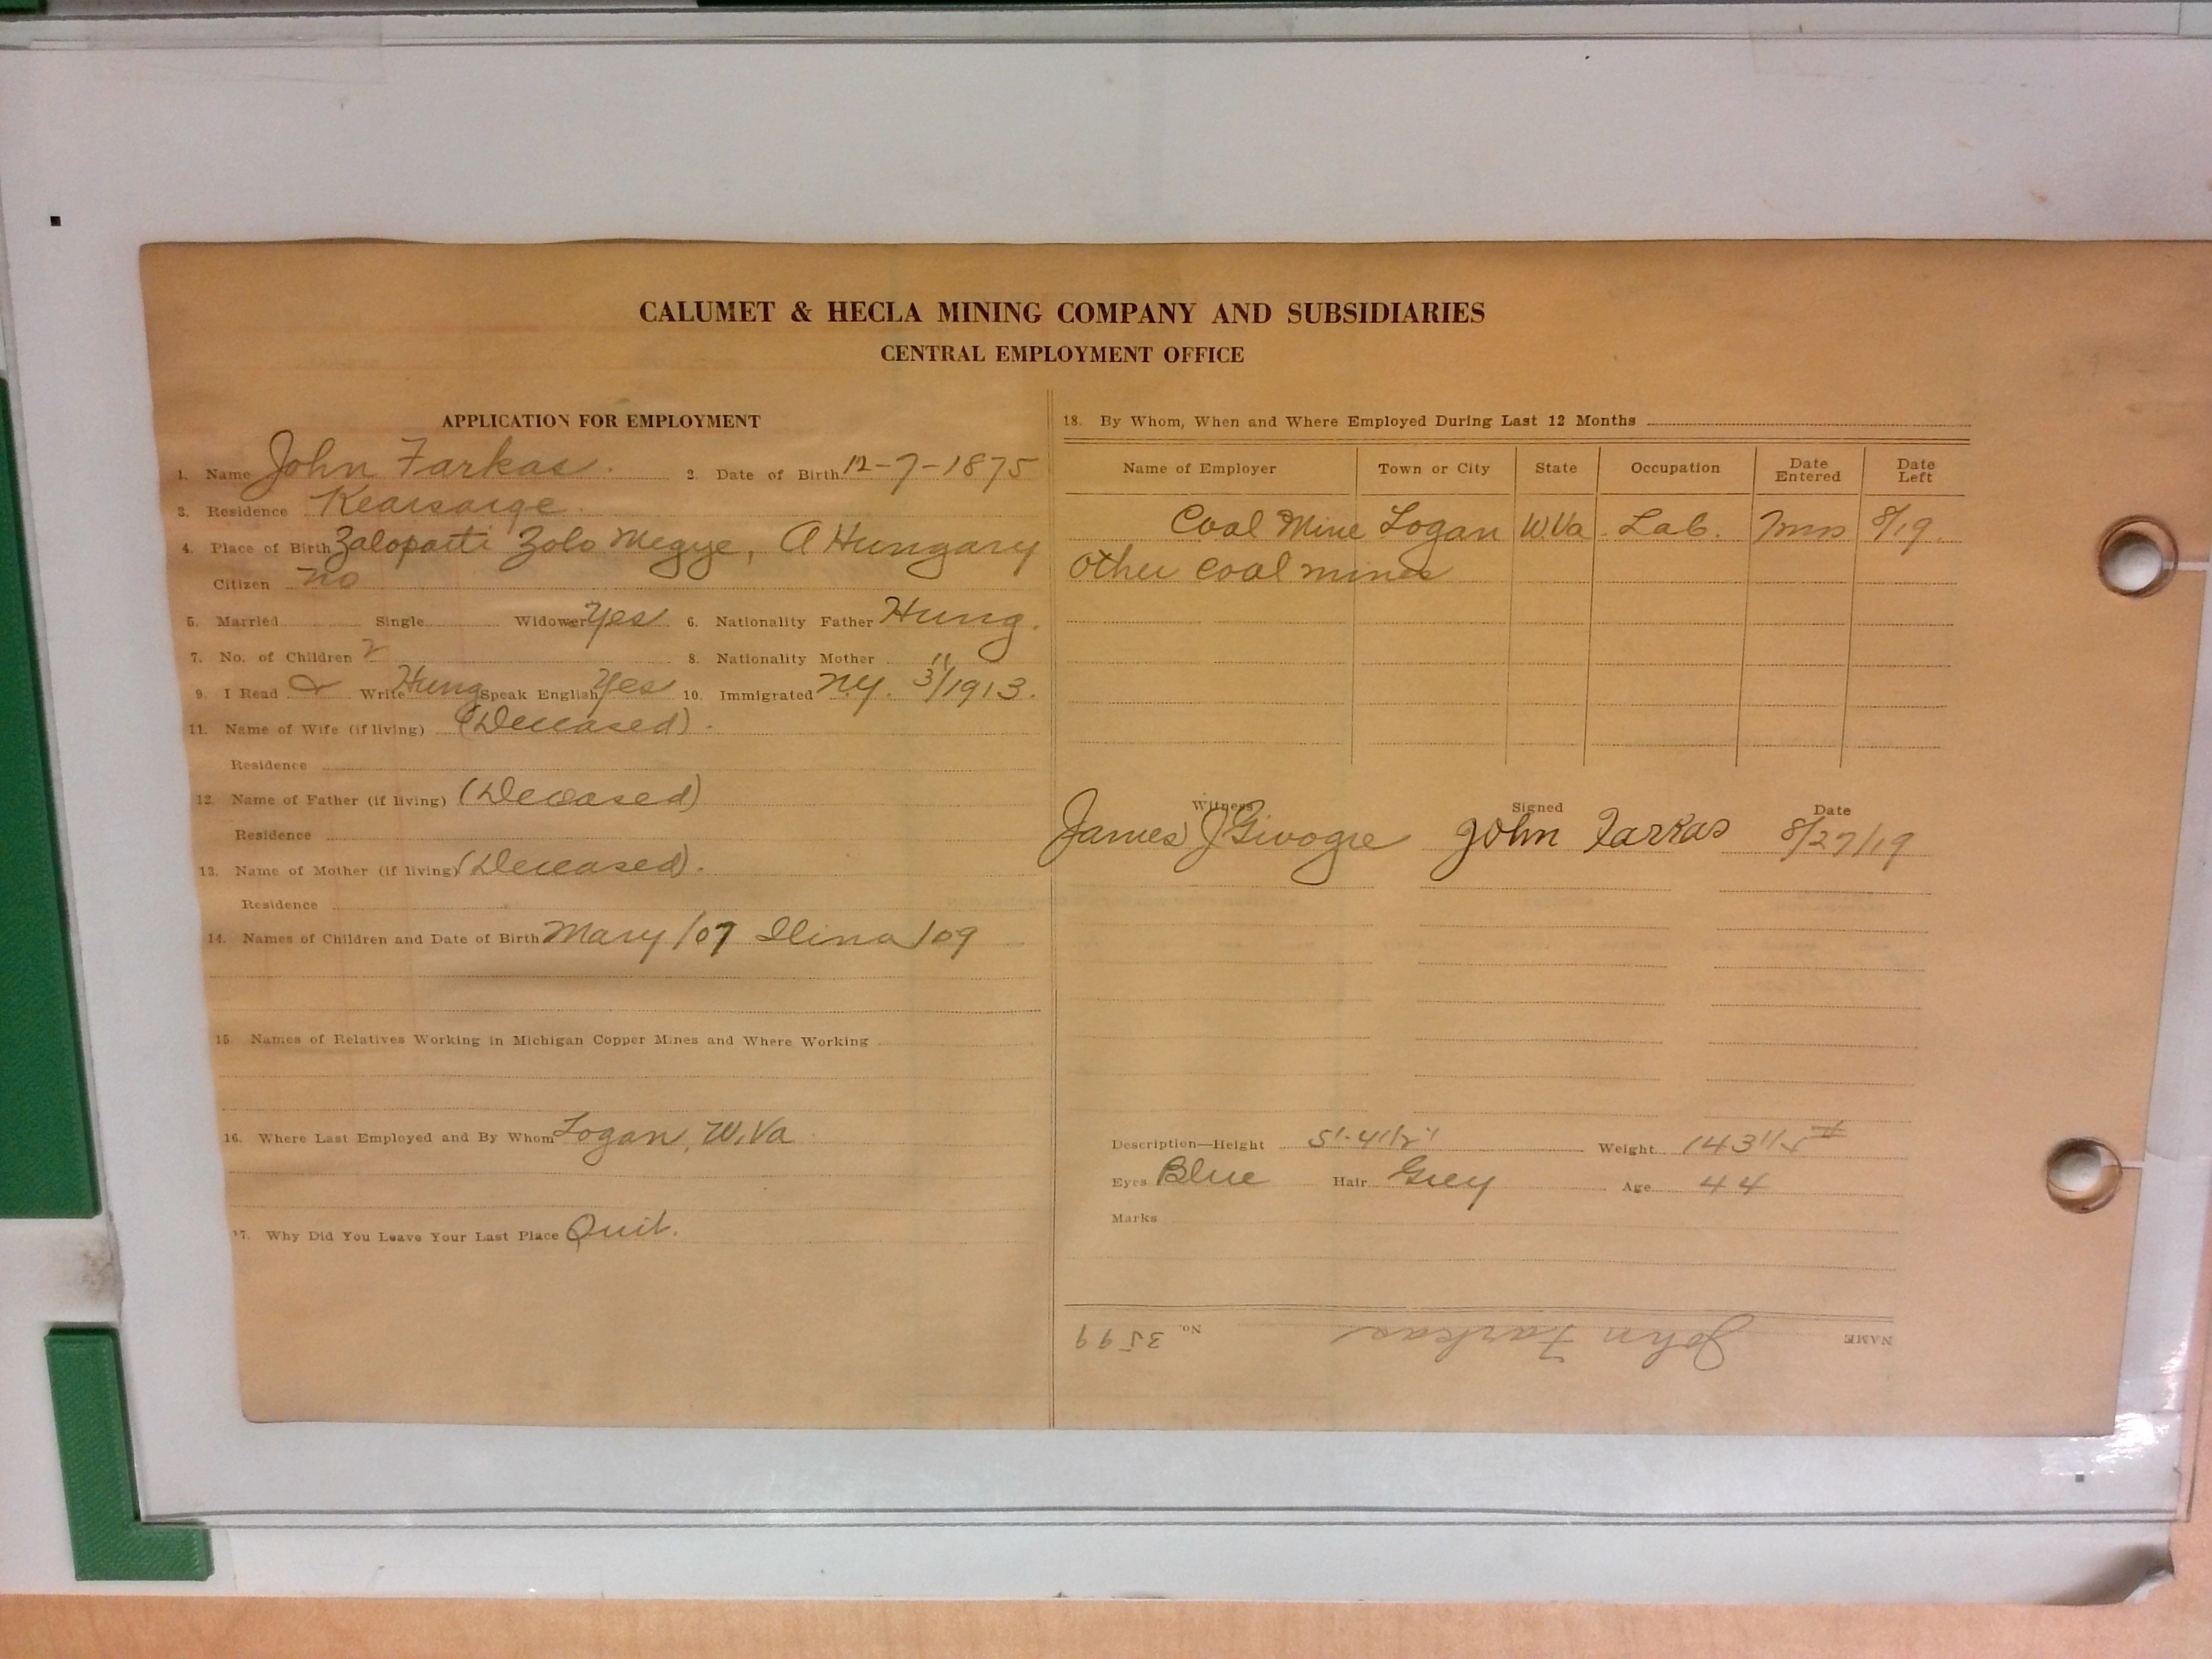 CALUMET & HECLA MINING COMPANY AND SUBSIDIARIES
CENTRAL EMPLOYMENT OFFICE
APPLICATION FOR EMPLOYMENT
1. Name John Farkas. 2. Date of Birth 12-7-1875
3. Residence Kearsarge.
4. Place of Birth Zalopatti Zolo Megye, A Hungary
Citizen no
5. Married Single Widower Yes 6. Nationality Father Hung.
7. No. of Children 2 8. Nationality Mother "
9. I Read & Write Hung Speak English Yes 10. Immigrated N.Y. 3/1913.
11. Name of Wife (if living) (Deceased).
Residence
12. Name of Father (if living) (Deceased)
Residence
13. Name of Mother (if living) (Deceased).
Residence
14. Names of Children and Date of Birth Mary /07 /09
15. Names of Relatives Working in Michigan Copper Mines and Where Working
16. Where Last Employed and By Whom Logan, W.Va
17. Why Did You Leave Your Last Place Quit.
18. By Whom, When and Where Employed During Last 12 Months
Name of Employer Town or City State Occupation Date Entered Date Left
Coal Mine Logan W.Va. Lab. 8/19.
Other coal mines
Witness Signed Date
James J John Farkas 8/27/19
Description—Height 5'-4 1/2" Weight 143 1/2 #
Eyes Blue Hair Grey Age 44
Marks
NAME John Farkas No. 3599